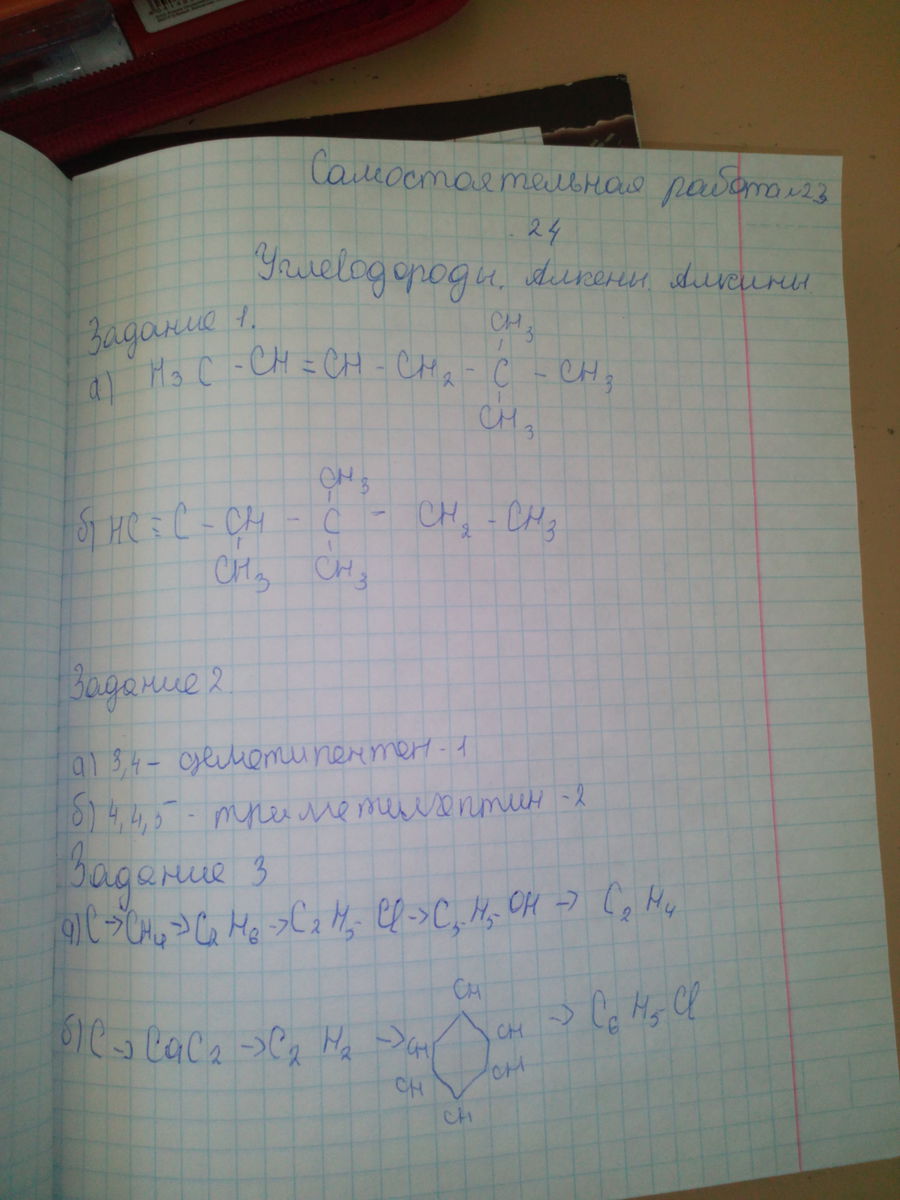 Самостоятельная работа №23
24
Углеводороды. Алкены. Алкины.
Задание 1.
CH3
а) H3C - CH = CH - CH2 - C - CH3
CH3
CH3
б) HC ≡ C - CH - C - CH2 - CH3
CH3 CH3
Задание 2.
а) 3,4 - диметилпентен - 1
б) 4,4,5 - триметилгептин - 2
Задание 3
а) C → CH4 → C2H6 → C2H5Cl → C5H5OH → C2H4
CH
б) C → CaC2 → C2H2 → CH CH → C6H5Cl
CH CH
CH